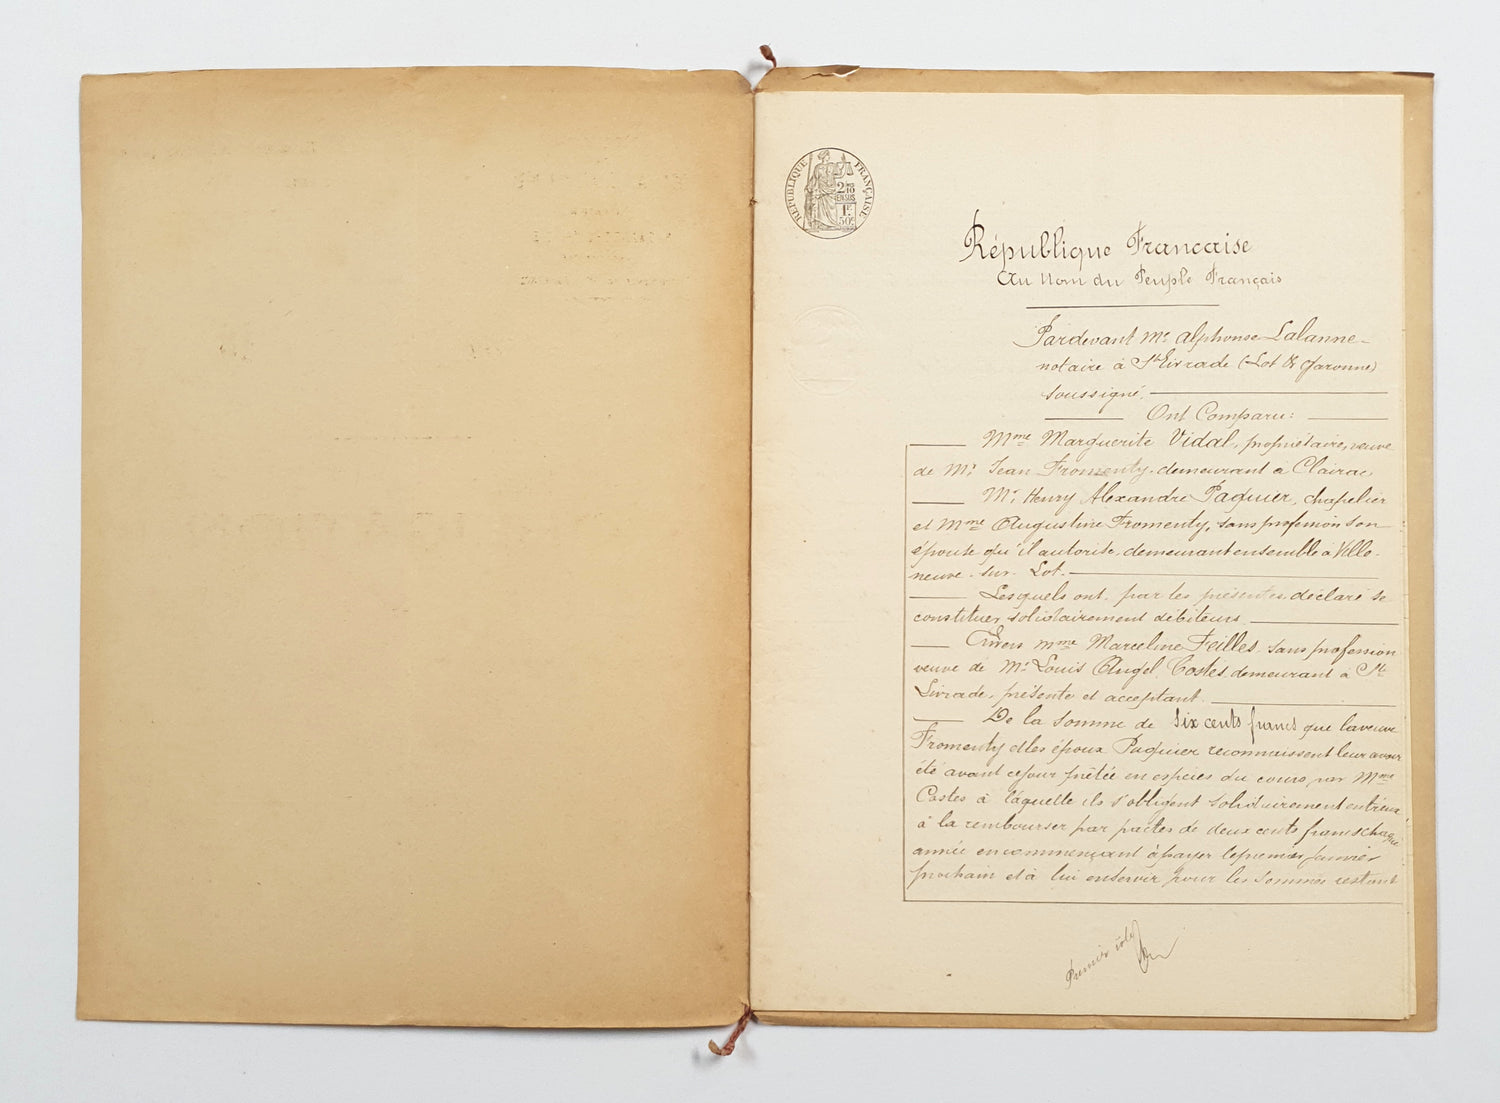 RÉPUBLIQUE FRANÇAISE
2/10
EN SUS
1F.
50c.
République Francaise
Au Nom du Peuple Français
Pardevant Me Alphonse Lalanne
notaire à Ste Livrade (Lot & Garonne)
soussigné.
Ont Comparu:
Mme Marguerite Vidal, propriétaire, veuve
de Mr Jean Fromenty, demeurant à Clairac
Mr Henry Alexandre Paquier, chapelier
et Mme Augustine Fromenty, sans profession son
épouse qu'il autorise, demeurant ensemble à Ville-
neuve-sur-Lot.
Lesquels ont, par les présentes, déclaré se
constituer solidairement débiteurs
Envers Mme Marceline Feilles, sans profession
veuve de Mr Louis Angel Costes, demeurant à Ste
Livrade, présente et acceptant.
De la somme de six cents francs que la veuve
Fromenty et les époux Paquier reconnaissent leur avoir
été avant ce jour prêtée en espèces du cours, par Mme
Costes à laquelle ils s'obligent solidairement entre eux
à la rembourser par pactes de deux cents francs chaque
année en commençant à payer le premier janvier
prochain et à lui en servir pour les sommes restant
Premier rôle